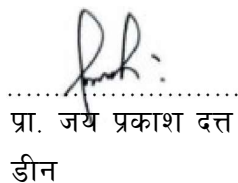 प्रा. जय प्रकाश दत्त
डीन